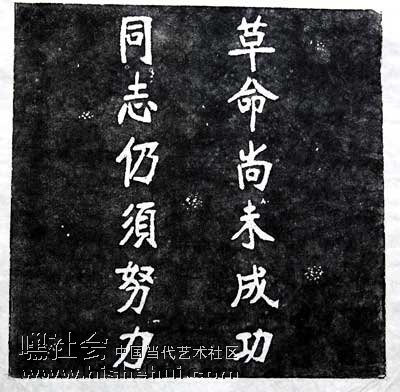 草命尚未成功
同志仍須努力
嘿社会 中国当代艺术社区
www.hishehui.com